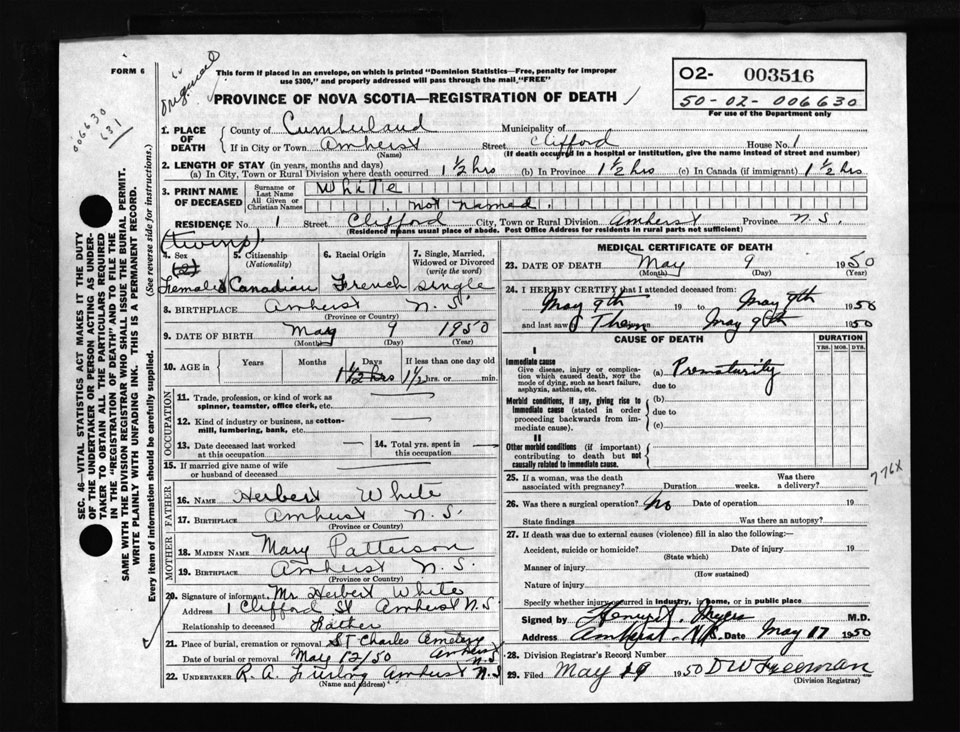 FORM 6
original
This form if placed in an envelope, on which is printed "Dominion Statistics—Free, penalty for improper
use $300," and properly addressed will pass through the mail, "FREE"
PROVINCE OF NOVA SCOTIA—REGISTRATION OF DEATH
O2- 003516
50-02-006630
For use of the Department only
006630
L31
SEC. 46—VITAL STATISTICS ACT MAKES IT THE DUTY
OF THE UNDERTAKER OR PERSON ACTING AS UNDER-
TAKER TO OBTAIN ALL THE PARTICULARS REQUIRED
IN THE "REGISTRATION OF DEATH" AND TO FILE THE
SAME WITH THE DIVISION REGISTRAR WHO SHALL ISSUE THE BURIAL PERMIT.
WRITE PLAINLY WITH UNFADING INK. THIS IS A PERMANENT RECORD.
Every item of information should be carefully supplied. (See reverse side for instructions.)
1. PLACE OF DEATH County of Cumberland Municipality of
If in City or Town Amherst Street Clifford House No. 1
(Name) (If death occurred in a hospital or institution, give the name instead of street and number)
2. LENGTH OF STAY (in years, months and days)
(a) In City, Town or Rural Division where death occurred 1 1/2 hrs (b) In Province 1 1/2 hrs (c) In Canada (if immigrant) 1 1/2 hrs
3. PRINT NAME OF DECEASED Surname or Last Name White
All Given or Christian Names not named.
RESIDENCE No. 1 Street Clifford City, Town or Rural Division Amherst Province N.S.
(Residence means usual place of abode. Post Office Address for residents in rural parts not sufficient)
(twins)
4. Sex 5. Citizenship (Nationality) 6. Racial Origin 7. Single, Married, Widowed or Divorced (write the word)
(2)
Female Canadian French single
8. BIRTHPLACE Amherst N.S.
(Province or Country)
9. DATE OF BIRTH May 9 1950
(Month) (Day) (Year)
10. AGE in Years Months Days If less than one day old
1 1/2 hrs 1 1/2 hrs. or min.
OCCUPATION
11. Trade, profession, or kind of work as
spinner, teamster, office clerk, etc.
12. Kind of industry or business, as cotton-
mill, lumbering, bank, etc.
13. Date deceased last worked at this occupation 14. Total yrs. spent in this occupation
15. If married give name of wife
or husband of deceased
FATHER
16. NAME Herbert White
17. BIRTHPLACE Amherst N.S.
(Province or Country)
MOTHER
18. MAIDEN NAME Mary Patterson
19. BIRTHPLACE Amherst N.S.
(Province or Country)
20. Signature of informant Mr Herbert White
Address 1 Clifford St Amherst N.S.
Relationship to deceased Father
21. Place of burial, cremation or removal St Charles Cemetery
Date of burial or removal May 12/50 Amherst N.S
22. UNDERTAKER R. A. Furlong Amherst N.S
(Name and address)
MEDICAL CERTIFICATE OF DEATH
23. DATE OF DEATH May 9 1950
(Month) (Day) (Year)
24. I HEREBY CERTIFY that I attended deceased from:
May 9th 19 to May 9th 1950
and last saw Them May 9th 1950
CAUSE OF DEATH DURATION
YRS. MOS. DYS.
I
Immediate cause
Give disease, injury or complica-
tion which caused death, NOT the
mode of dying, such as heart failure,
asphyxia, asthenia, etc.
(a) Prematurity
due to
Morbid conditions, if any, giving rise to
immediate cause (stated in order
proceeding backwards from im-
mediate cause).
(b)
due to
(c)
II
Other morbid conditions (if important)
contributing to death but not
causally related to immediate cause.
776X
25. If a woman, was the death associated with pregnancy? Duration weeks. Was there a delivery?
26. Was there a surgical operation? No Date of operation 19
State findings Was there an autopsy?
27. If death was due to external causes (violence) fill in also the following:—
Accident, suicide or homicide? Date of injury 19
(State which)
Manner of injury
(How sustained)
Nature of injury
Specify whether injury occurred in industry, in home, or in public place
Signed by M.D.
Address Amherst, N.S. Date May 17 1950
28. Division Registrar's Record Number
29. Filed May 19 1950 D W Freeman
(Division Registrar)